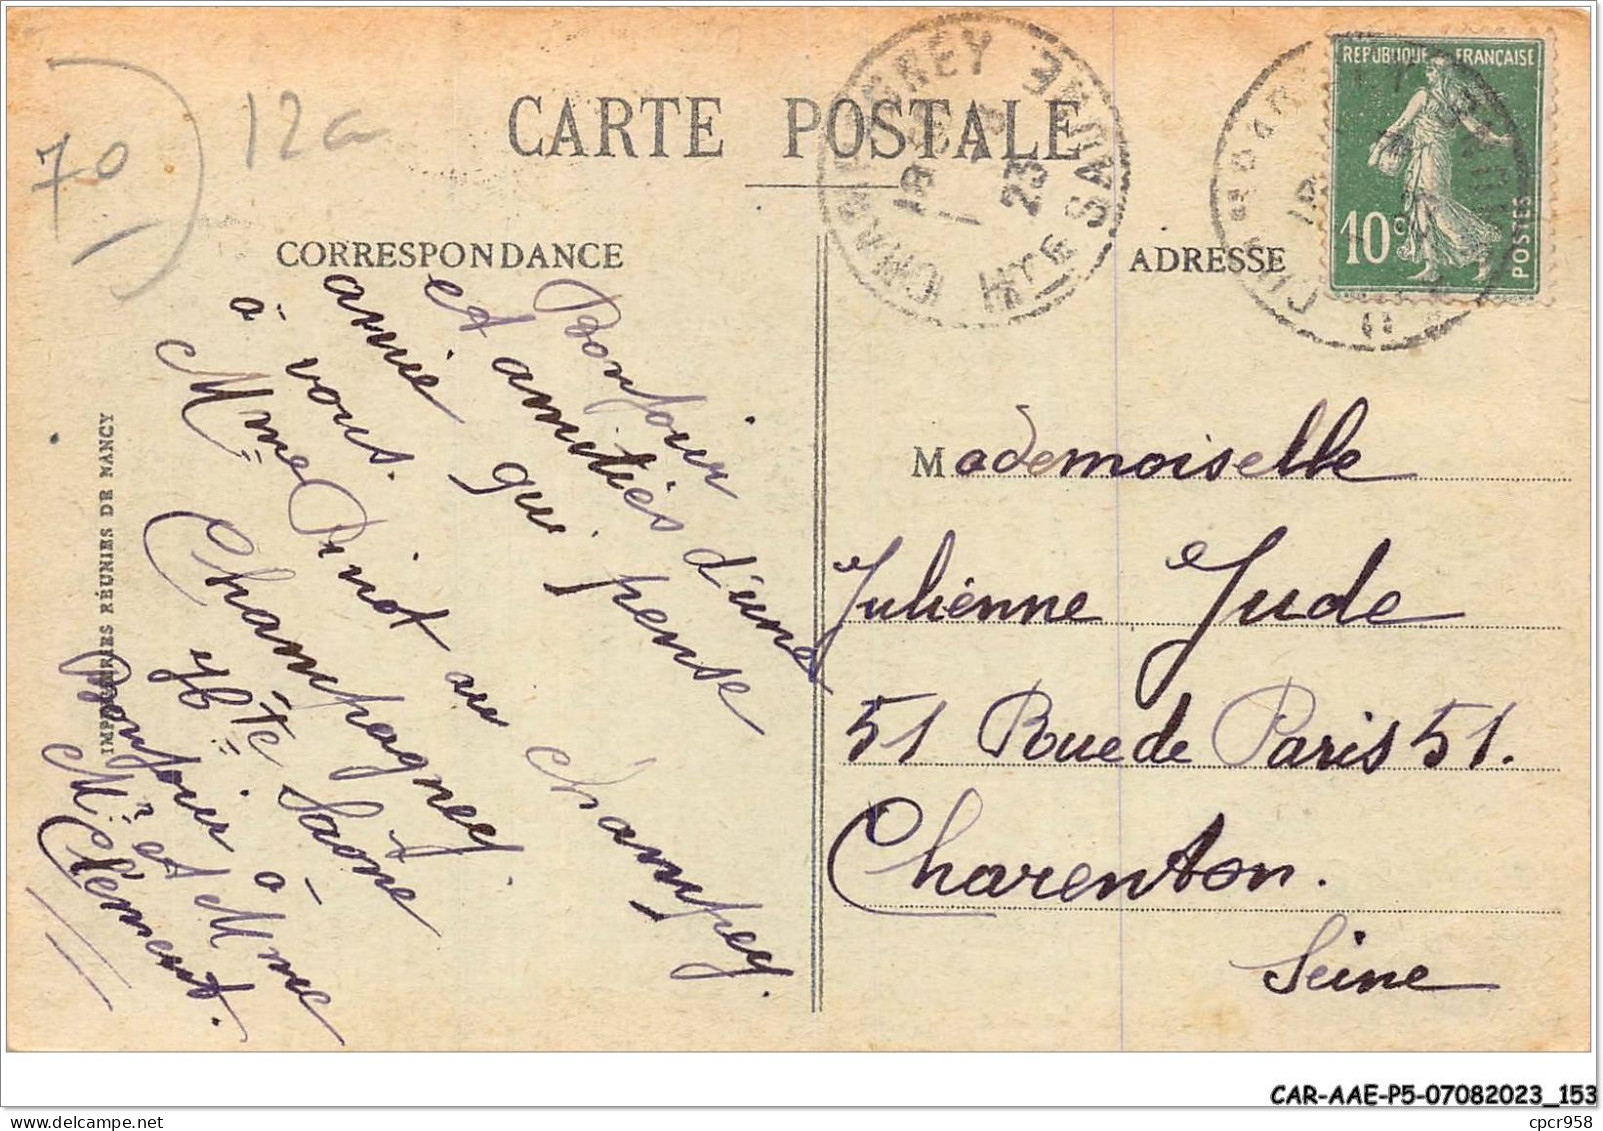 70
12a
CARTE POSTALE
CORRESPONDANCE
ADRESSE
CHAMPAGNEY
HTE SAONE
18
23
REPUBLIQUE FRANÇAISE
10c
POSTES
IMPRIMERIES RÉUNIES DE NANCY
Bonjour
et amitiés d'une
amie qui pense
à vous.
Mme Pinot au Champey.
Champagney.
Hte Saône
Bonjour à
Mr et Mme
Clément.
Mademoiselle
Julienne Jude
51 Rue de Paris 51.
Charenton.
Seine
CAR-AAE-P5-07082023_153
www.delcampe.net
cpcr958